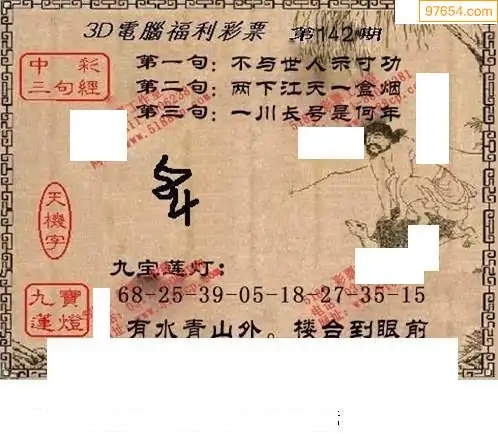 97654.com
3D電腦福利彩票 第142期
中彩
三句經
第一句：不与世人示寸功
第二句：两下江天一盒烟
第三句：一川长号是何年
天機字
九宝莲灯：
68-25-39-05-18-27-35-15
九寶蓮燈
有水青山外。楼台到眼前